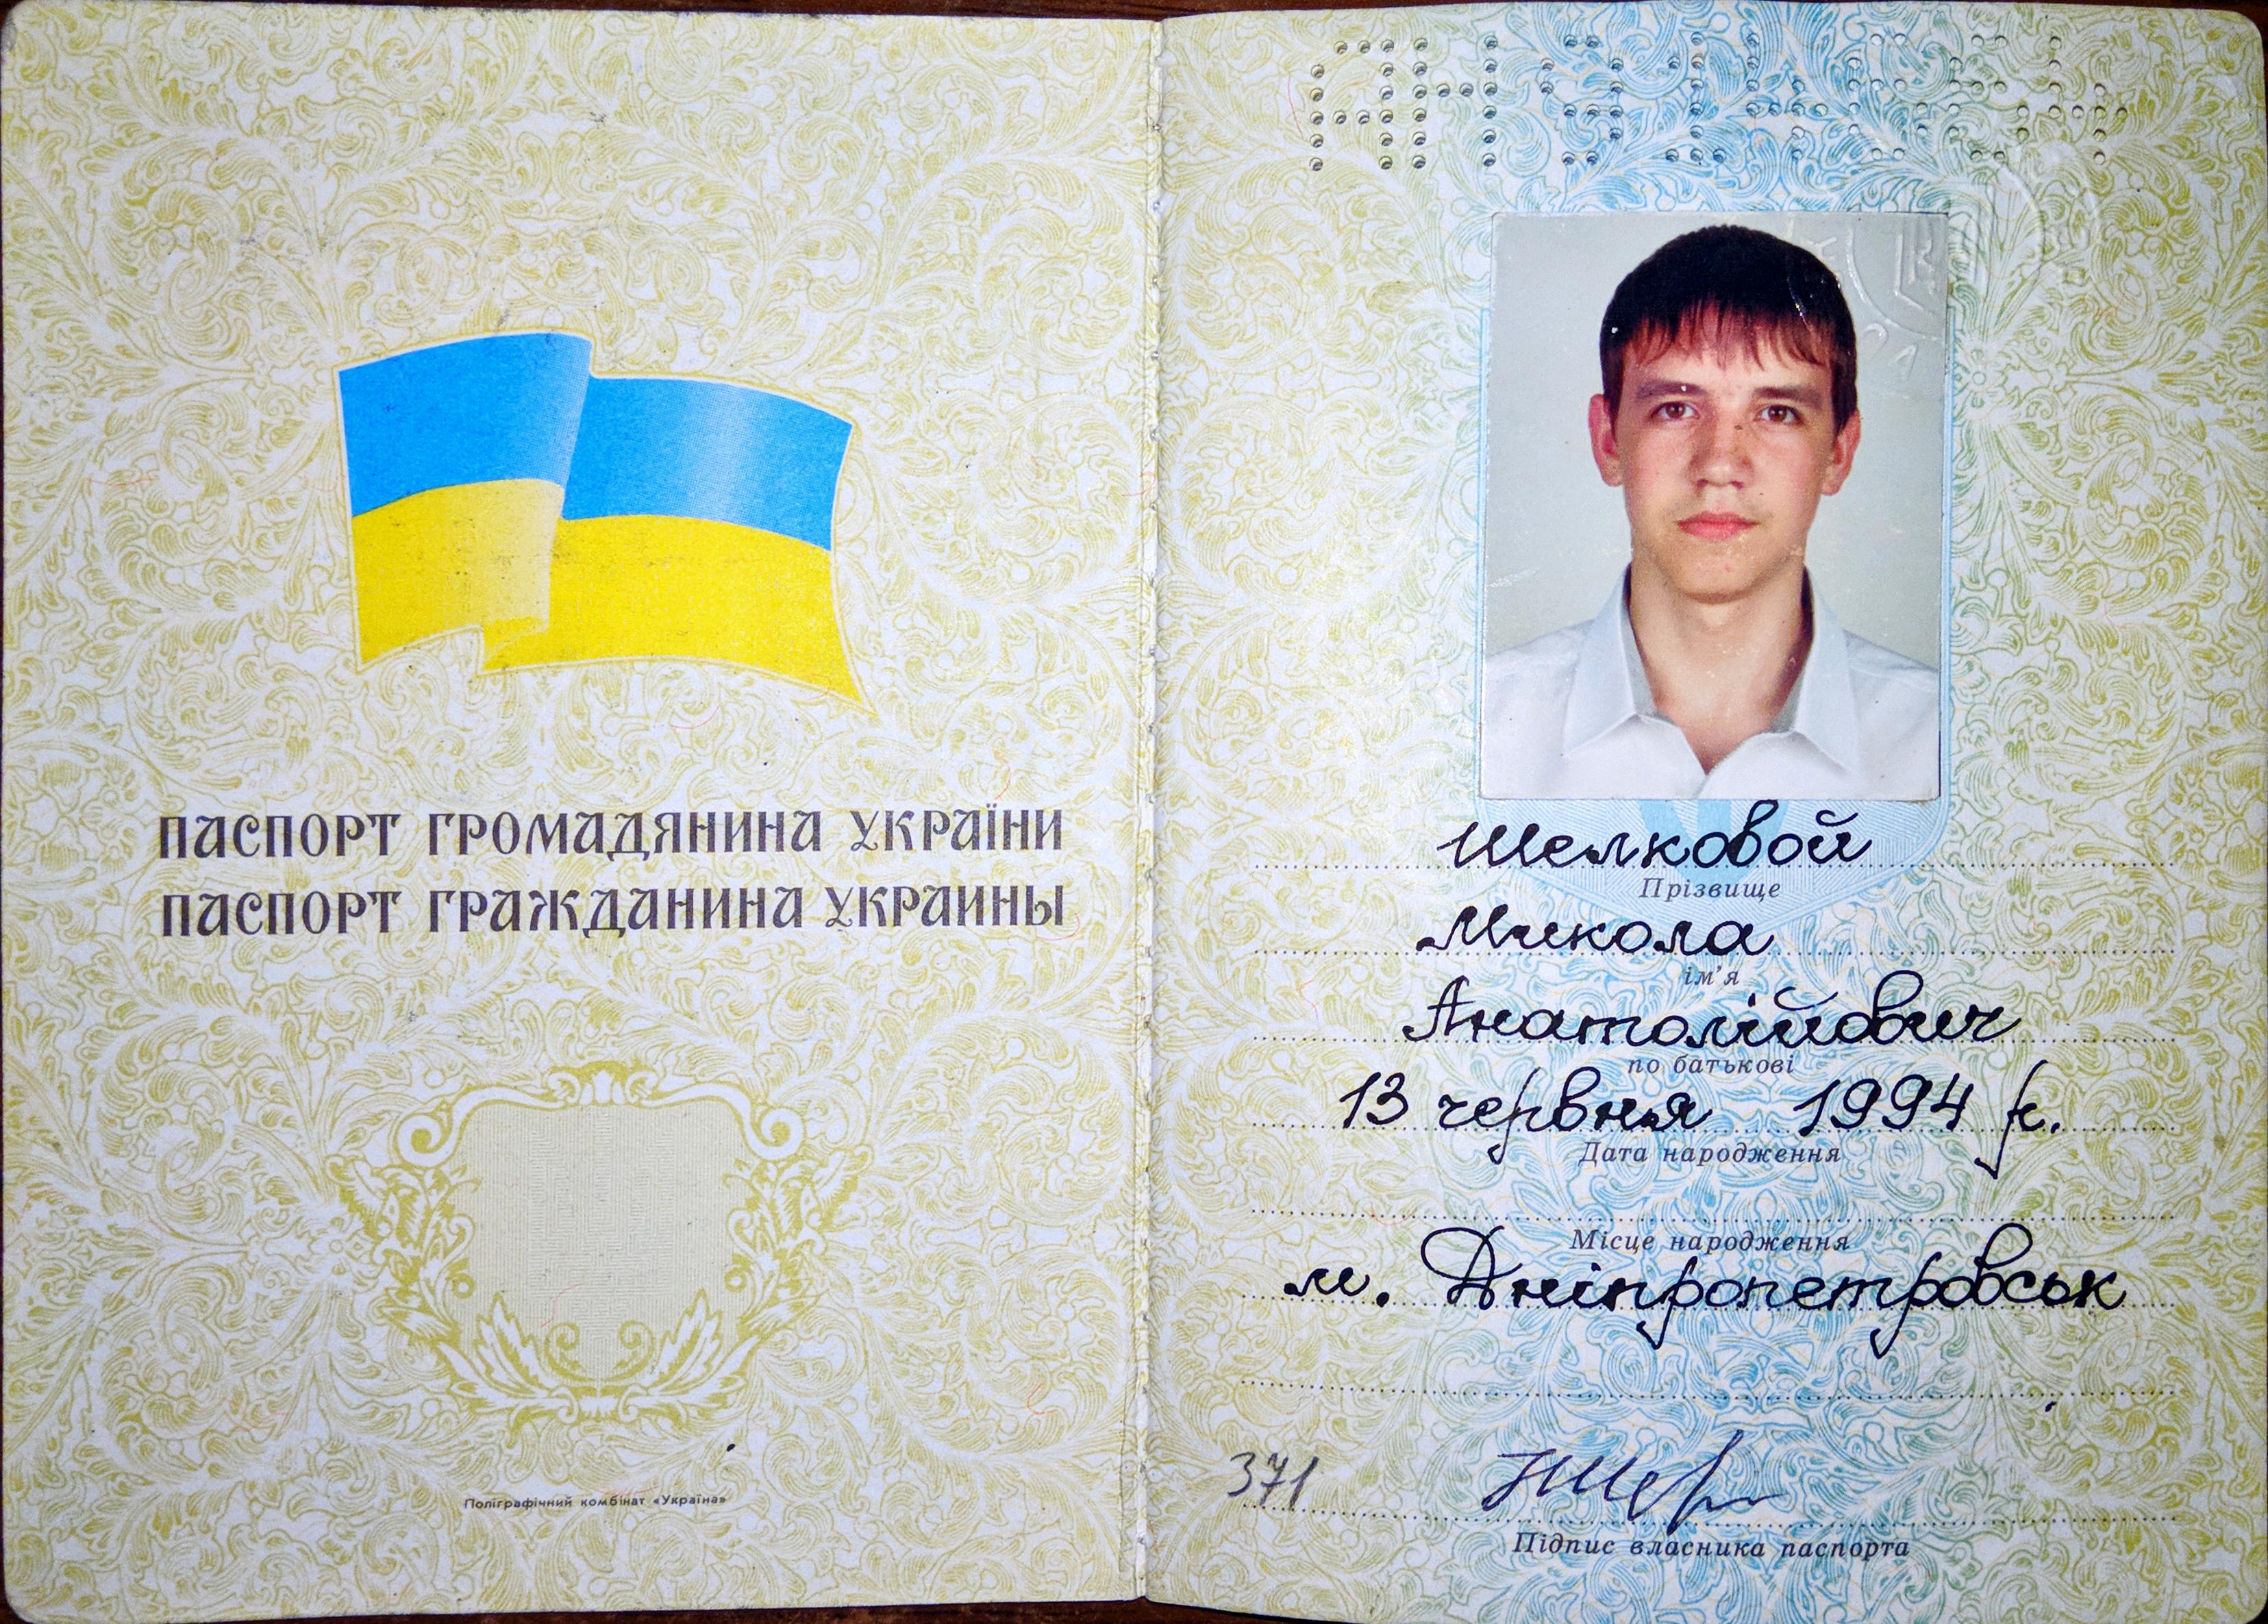 ПАСПОРТ ГРОМАДЯНИНА УКРАЇНИ
ПАСПОРТ ГРАЖДАНИНА УКРАИНЫ
Поліграфічний комбінат «Україна»
Шелковой
Прізвище
Микола
ім'я
Анатолійович
по батькові
13 червня 1994 р.
Дата народження
Місце народження
м. Дніпропетровськ
371
Підпис власника паспорта